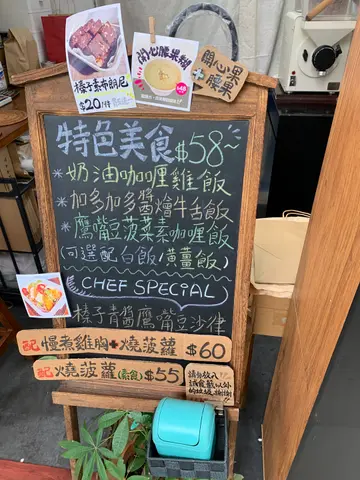 榛子素布朗尼
$20/件
開心腰果糊
開心果
+腰果
特色美食$58~
*奶油咖喱雞飯
*加多加多醬燴牛舌飯
*鷹嘴豆菠菜素咖喱飯
(可選配 白飯/黃薑飯)
CHEF SPECIAL
榛子青醬鷹嘴豆沙律
配 慢煮雞胸+燒菠蘿 $60
配 燒菠蘿(素食) $55
請勿放入